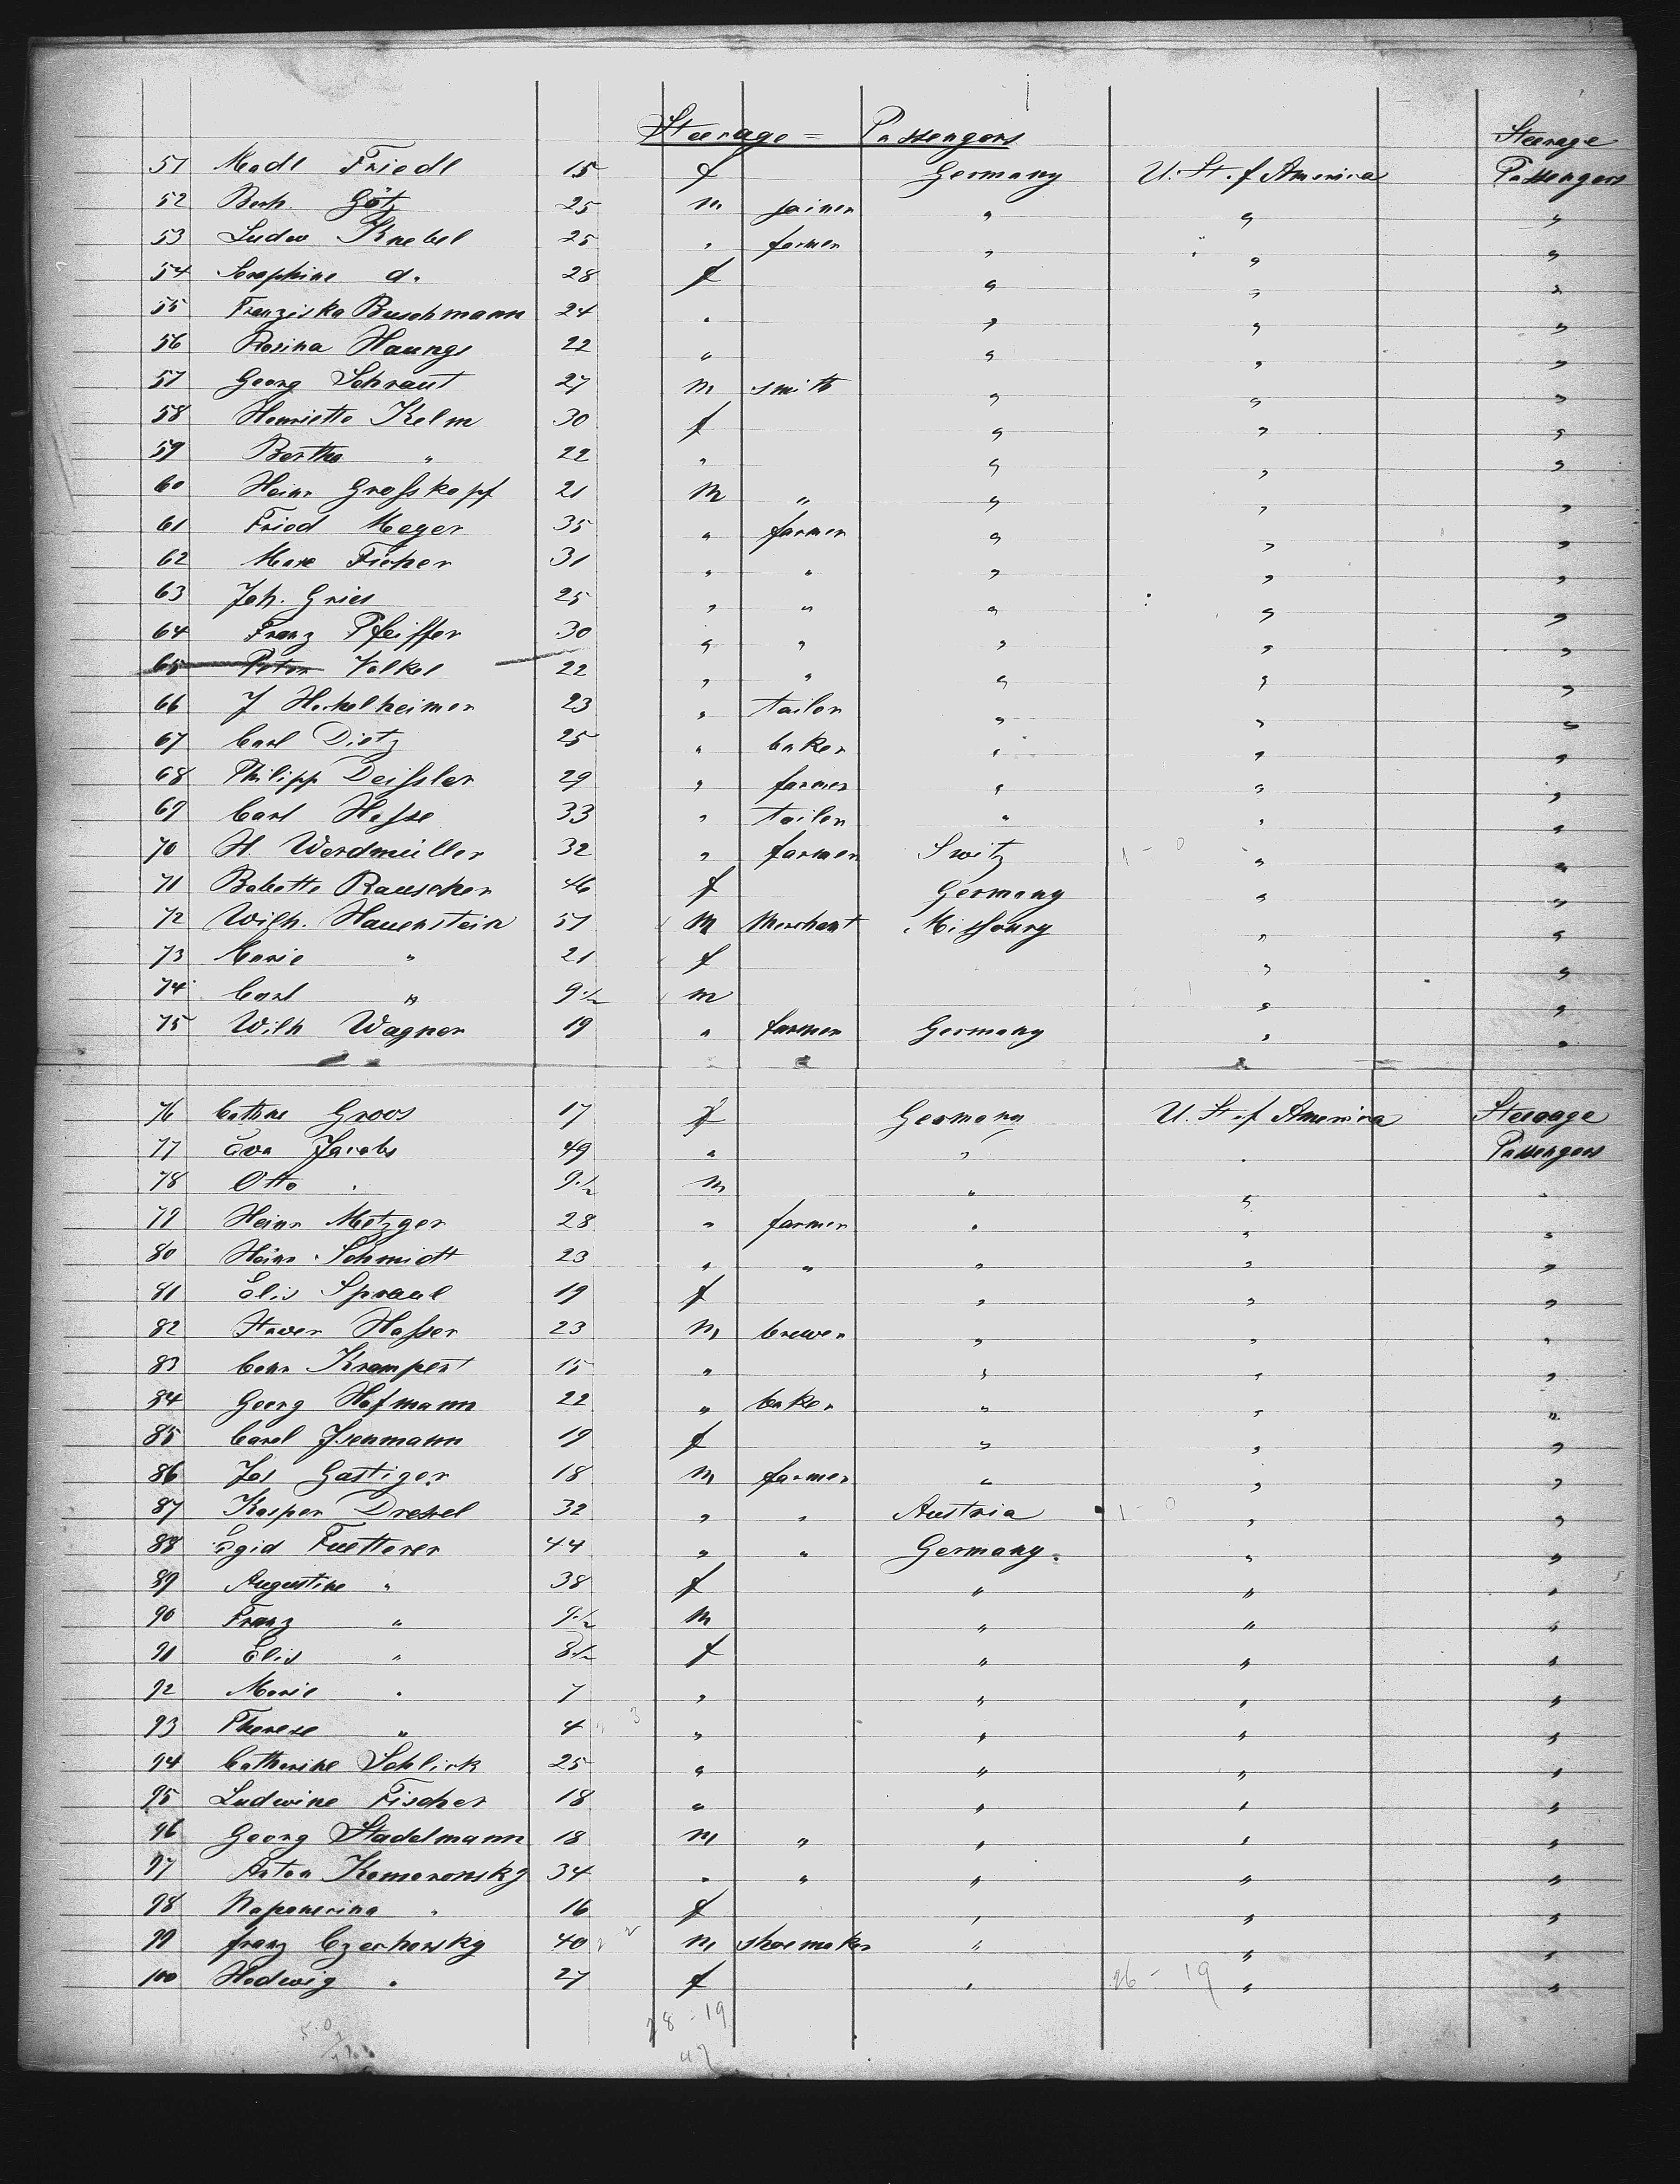 Steerage = Passengers Steerage
51 Madl Friedl 15 f Germany U. St. of America Passengers
52 Berh. Götz 25 m joiner " " "
53 Ludw Knebel 25 " farmer " " "
54 Seraphine d. 28 f " " "
55 Franziska Buschmann 24 " " " "
56 Rosina Haungs 22 " " " "
57 Georg Schraut 27 m smith " " "
58 Henriette Kelm 30 f " " "
59 Bertha " 22 " " " "
60 Heinr Grosskopf 21 m " " " "
61 Fried Meyer 35 " farmer " " "
62 Max Ficher 31 " " " " "
63 Joh. Gries 25 " " " " "
64 Franz Pfeiffer 30 " " " " "
65 Peter Volkel 22 " " " " "
66 J Hechelheimer 23 " tailor " " "
67 Carl Dietz 25 " baker " " "
68 Philipp Deissler 29 " farmer " " "
69 Carl Hasse 33 " tailor " " "
70 H. Werdmüller 32 " farmer Switz 1 - 0 " "
71 Babette Rauscher 46 f Germany " "
72 Wilh. Hauenstein 51 m Merchant Missoury " "
73 Marie " 21 f " "
74 Carl " 9 1/2 m " "
75 Wilh Wagner 19 " farmer Germany " "
76 Cathne Groos 17 f Germany U. St. of America Steerage
77 Eva Jacobs 49 " " " Passengers
78 Otto " 9 1/2 m " " "
79 Heinr Metzger 28 " farmer " " "
80 Heinr. Schmidt 23 " " " " "
81 Elis Spraul 19 f " " "
82 Xaver Hasser 23 m brewer " " "
83 Conr Krampert 15 " " " "
84 Georg Hofmann 22 " baker " " "
85 Carol Isenmann 19 f " " "
86 Jos Gastiger 18 m farmer " " "
87 Kasper Drexel 32 " " Austria 1 - 0 " "
88 Egid Fuetterer 44 " " Germany. " "
89 Augustine " 38 f " " "
90 Franz " 9 1/2 m " " "
91 Elis " 8 1/2 f " " "
92 Marie " 7 " " " "
93 Therese " 4 " 3 " " " "
94 Catherine Schlick 25 " " " "
95 Ludwine Fischer 18 " " " "
96 Georg Stadelmann 18 m " " " "
97 Anton Komoronsky 34 " " " " "
98 Naponerina " 16 f " " "
99 franz Czechowsky 40 m shoemaker " " "
100 Hedwig " 27 f " 26 - 19 " "
28 - 19
47